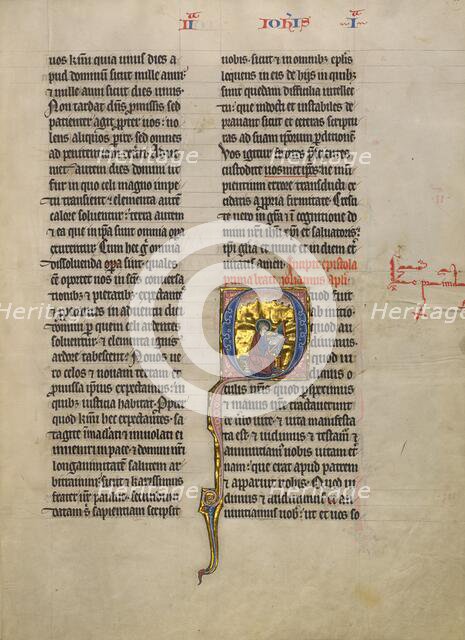 II Joh'is I
uos k'mi quia unus dies a
pud dominum sicut mille anni
et mille anni sicut dies unus.
Non tardat d'ns p'missis sed
patienter agit p'pter uos: no
lens aliquos p'ire sed omnes
ad penitentiam
autem dies domini ut
fur in quo celi magno impe
tu transient: elementa autem
calore soluentur: terra autem
et ea que in ip'a sunt omnia opa
exurentur. Cum hec g' omnia
dissoluenda opa sunt quales
oportet uos in sanctis conuersati
onibus et pietatib' expectantes
et properantes in aduentum
domini p' quem celi ardentes
soluentur et elementa ignis
ardore tabescent. Nouos ue
ro celos et nouam terram et
p'missa ip'ius expectamus: in
quibus iusticia habitat. Propter
quod k'mi hec expectantes. sa
tagite i'maculati et inuiolati ei
inueniri in pace: et domini n'ri
longanimitatem salutem ar
bitramini. sicut et karissimus
frater n'r paulus secundum
datam s' sapientiam scripsit
uobis. sicut et in omnibus ep'lis
loquens in eis de hijs in quib'
sunt quedam difficilia intellec
tu: que indocti et instabiles de
prauant sicut et ceteras scriptu
ras ad suam ip'orum p'ditionem
Vos igitur fratres p'scientes
custodite uosmetip'os: ne insi
pientium errore transducti ex
cidatis a propria firmitate. Cresci
te uero in gra'a et cognitione do
mini n'ri ih'u xp'i et saluatoris:
ip'i gl'ia et nunc et in diem et
nitatis amen. Incipit epistola
prima beati iohannis apl'i.
quod fuit
ab initio
quod au
diuimus
quod ui
dimus o
culis n'ris quod p'speximus
et manus n're tractauerunt
de uerbo uite: et uita manifesta
ta est: et uidimus et testamur et
annuntiamus uobis uitam et'
nam: que erat apud patrem
et apparuit nobis. Quod ui
dimus et audiuimus et an
nuntiamus uob': ut et uos so
Heritage
Heritage
Heritage
Heritage
Heritage
Images
Images
Images